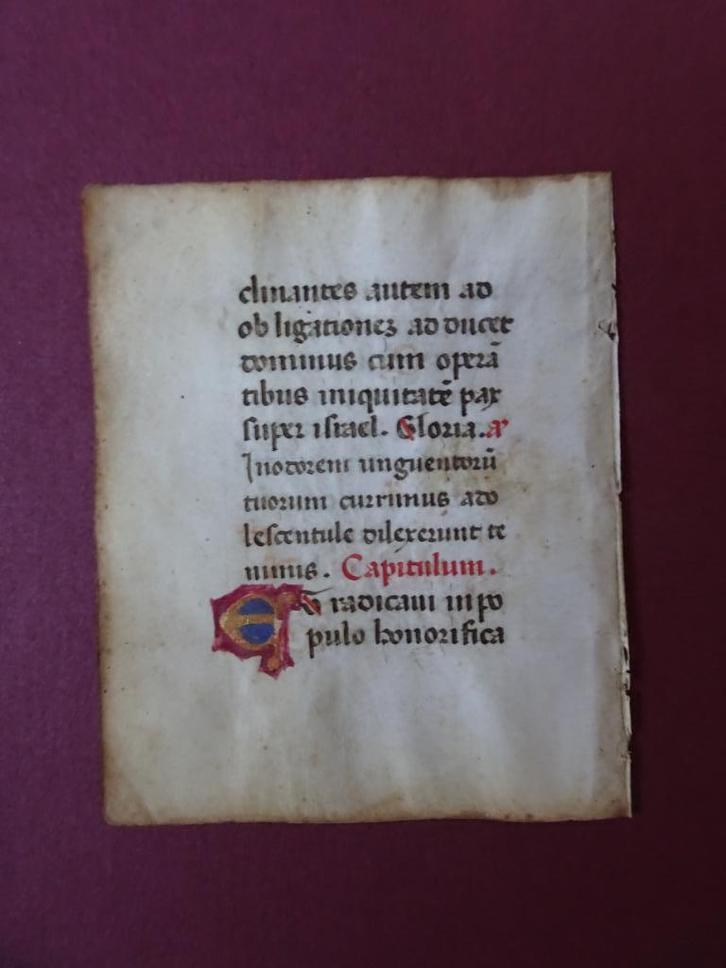 clinantes autem ad
obligationes adducet
dominus cum operā
tibus iniquitatē pax
super israel. Gloria. an̄
In odorem unguentorū
tuorum currimus ado
lescentule dilexerunt te
nimis. Capitulum.
Et radicaui in po
pulo honorifica